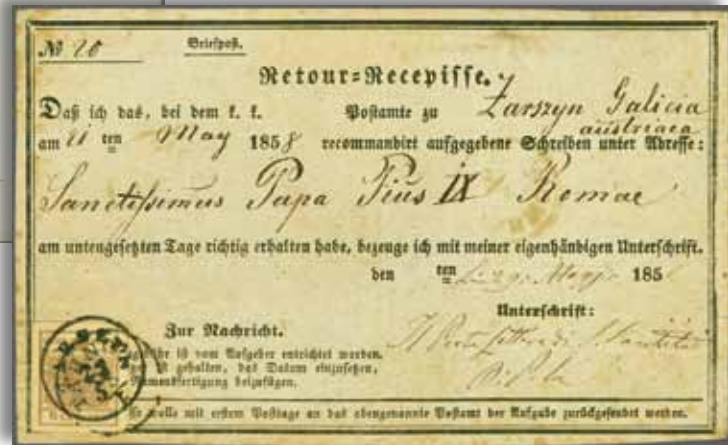 № 20 Briefpost.
Retour=Recepisse.
Daß ich das, bei dem k. k. Postamte zu Zarszyn Galicia
austriaca
am 21 ten May 1858 recommandirt aufgegebene Schreiben unter Adresse:
Sanctissimus Papa Pius IX Romae
am untengesetzten Tage richtig erhalten habe, bezeuge ich mit meiner eigenhändigen Unterschrift.
den ten 185
Unterschrift:
Zur Nachricht.
ist vom Aufgeber entrichtet worden.
gehalten, das Datum einzusetzen,
Namensfertigung beizufügen.
wolle mit erstem Posttage an das obengenannte Postamt der Aufgabe zurückgesendet werden.